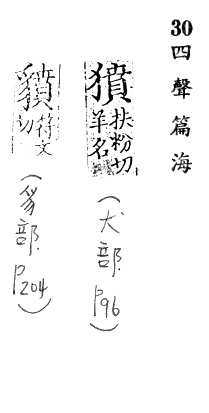 30
四聲篇海
獖 扶粉切
羊名
(犬部 P96)
豶 符文切
(豸部 P204)